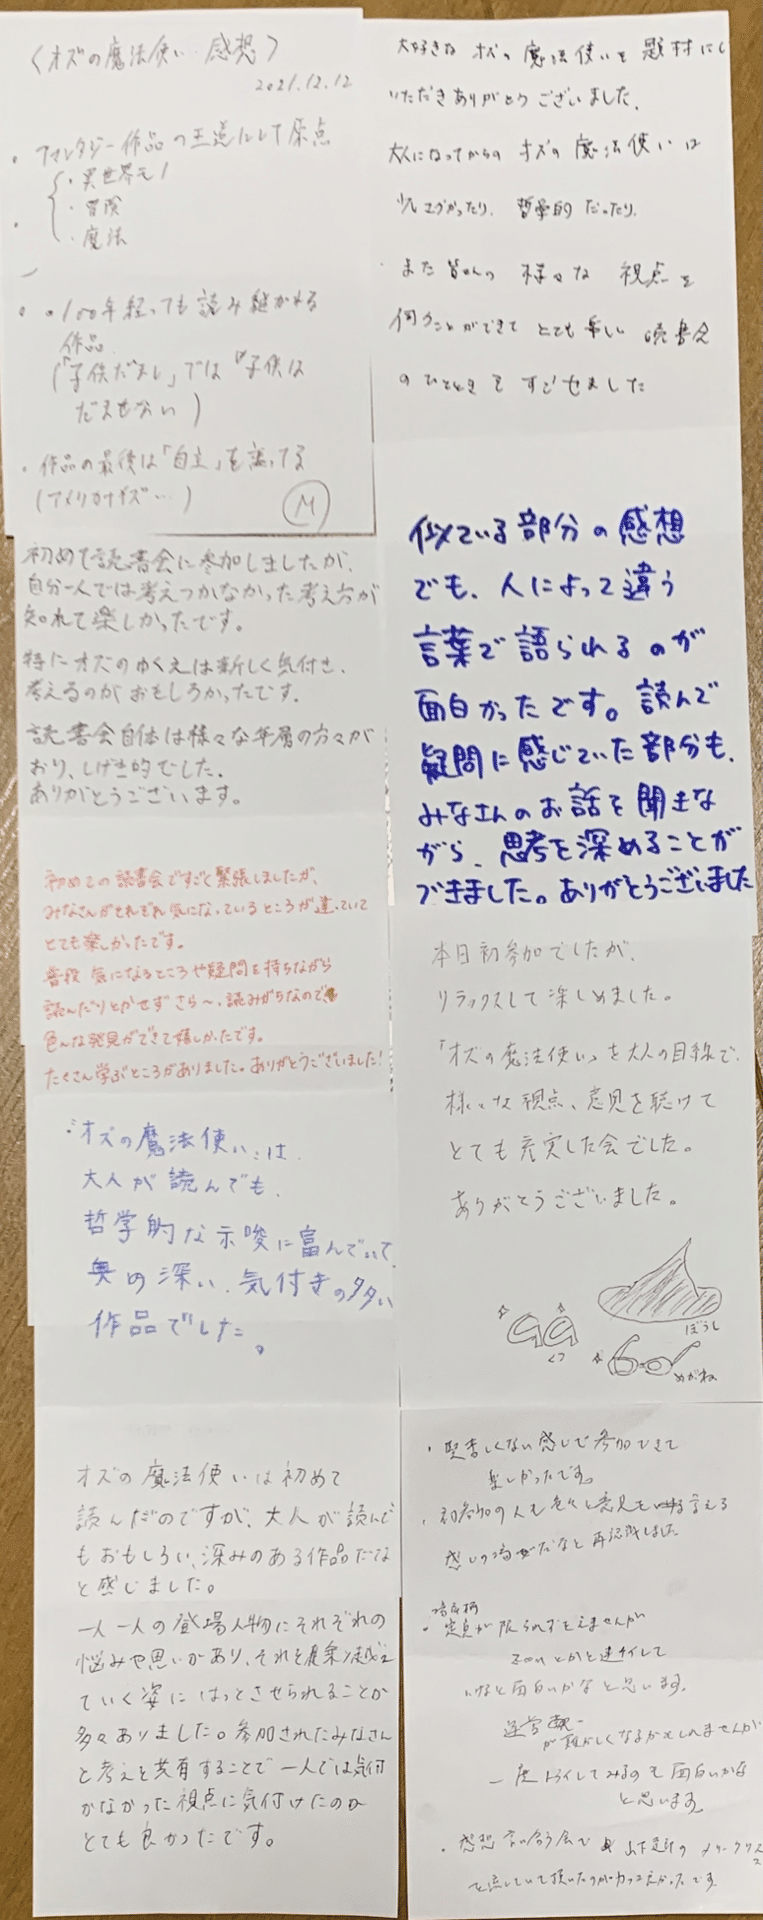 〈オズの魔法使い 感想〉
2021.12.12
・ファンタジー作品の王道にして原点
・異世界モノ
・冒険
・魔法
・100年経っても読み継がれる
作品
(「子供だまし」では『子供は
だませない)
・作品の最後は「自立」を語ってる
(アメリカナイズ…)
M
初めて読書会に参加しましたが、
自分一人では考えつかなかった考え方が
知れて楽しかったです。
特にオズのゆくえは新しく気付き、
考えるのがおもしろかったです。
読書会自体は様々な年層の方々が
おり、しげき的でした。
ありがとうございます。
初めての読書会ですごく緊張しましたが、
みなさんがそれぞれ気になっているところが違っていて
とても楽しかったです。
普段 気になるところや疑問を持ちながら
読んだりとかせず さら〜っ読みがちなので
色んな発見ができて嬉しかったです。
たくさん学ぶところがありました。ありがとうございました!
『オズの魔法使い』は、
大人が読んでも、
哲学的な示唆に富んでいて、
奥の深い、気付きの多い
作品でした。
オズの魔法使いは初めて
読んだのですが、大人が読んで
もおもしろい、深みのある作品だな
と感じました。
一人一人の登場人物にそれぞれの
悩みや思いがあり、それを乗り越え
ていく姿に はっとさせられることが
多々ありました。参加されたみなさん
と考えを共有することで一人では気付
かなかった視点に気付けたのが
とても良かったです。
大好きな オズの魔法使いを 題材にし
いただきありがとうございました。
大人になってからの オズの魔法使いは
少しエグかったり、哲学的だったり、
また皆さんの 様々な 視点を
伺うことができて とても楽しい 読書会
のひとときを すごせました
似ている部分の感想
でも、人によって違う
言葉で語られるのが
面白かったです。読んで
疑問に感じていた部分も、
みなさんのお話を聞きな
がら、思考を深めることが
できました。ありがとうございました
本日初参加でしたが、
リラックスして楽しめました。
「オズの魔法使い」を大人の目線で、
様々な視点、意見を聴けて
とても充実した会でした。
ありがとうございました。
ぼうし
くつ
めがね
・堅苦しくない感じで参加できて
楽しかったです。
・初参加の人も色々と意見を言える
感じの場だなと再認識しました
場所柄
・定員が限られずとえませんが
zoomとかと連携して
いけると面白いかなと思います。
運営
が難かしくなるかもしれませんが
一度トライしてみるのも面白いかな
と思います。
・感想言い合う会で 山下達郎の メリークリスマス
を流していて頂いたのがカッコよかったです